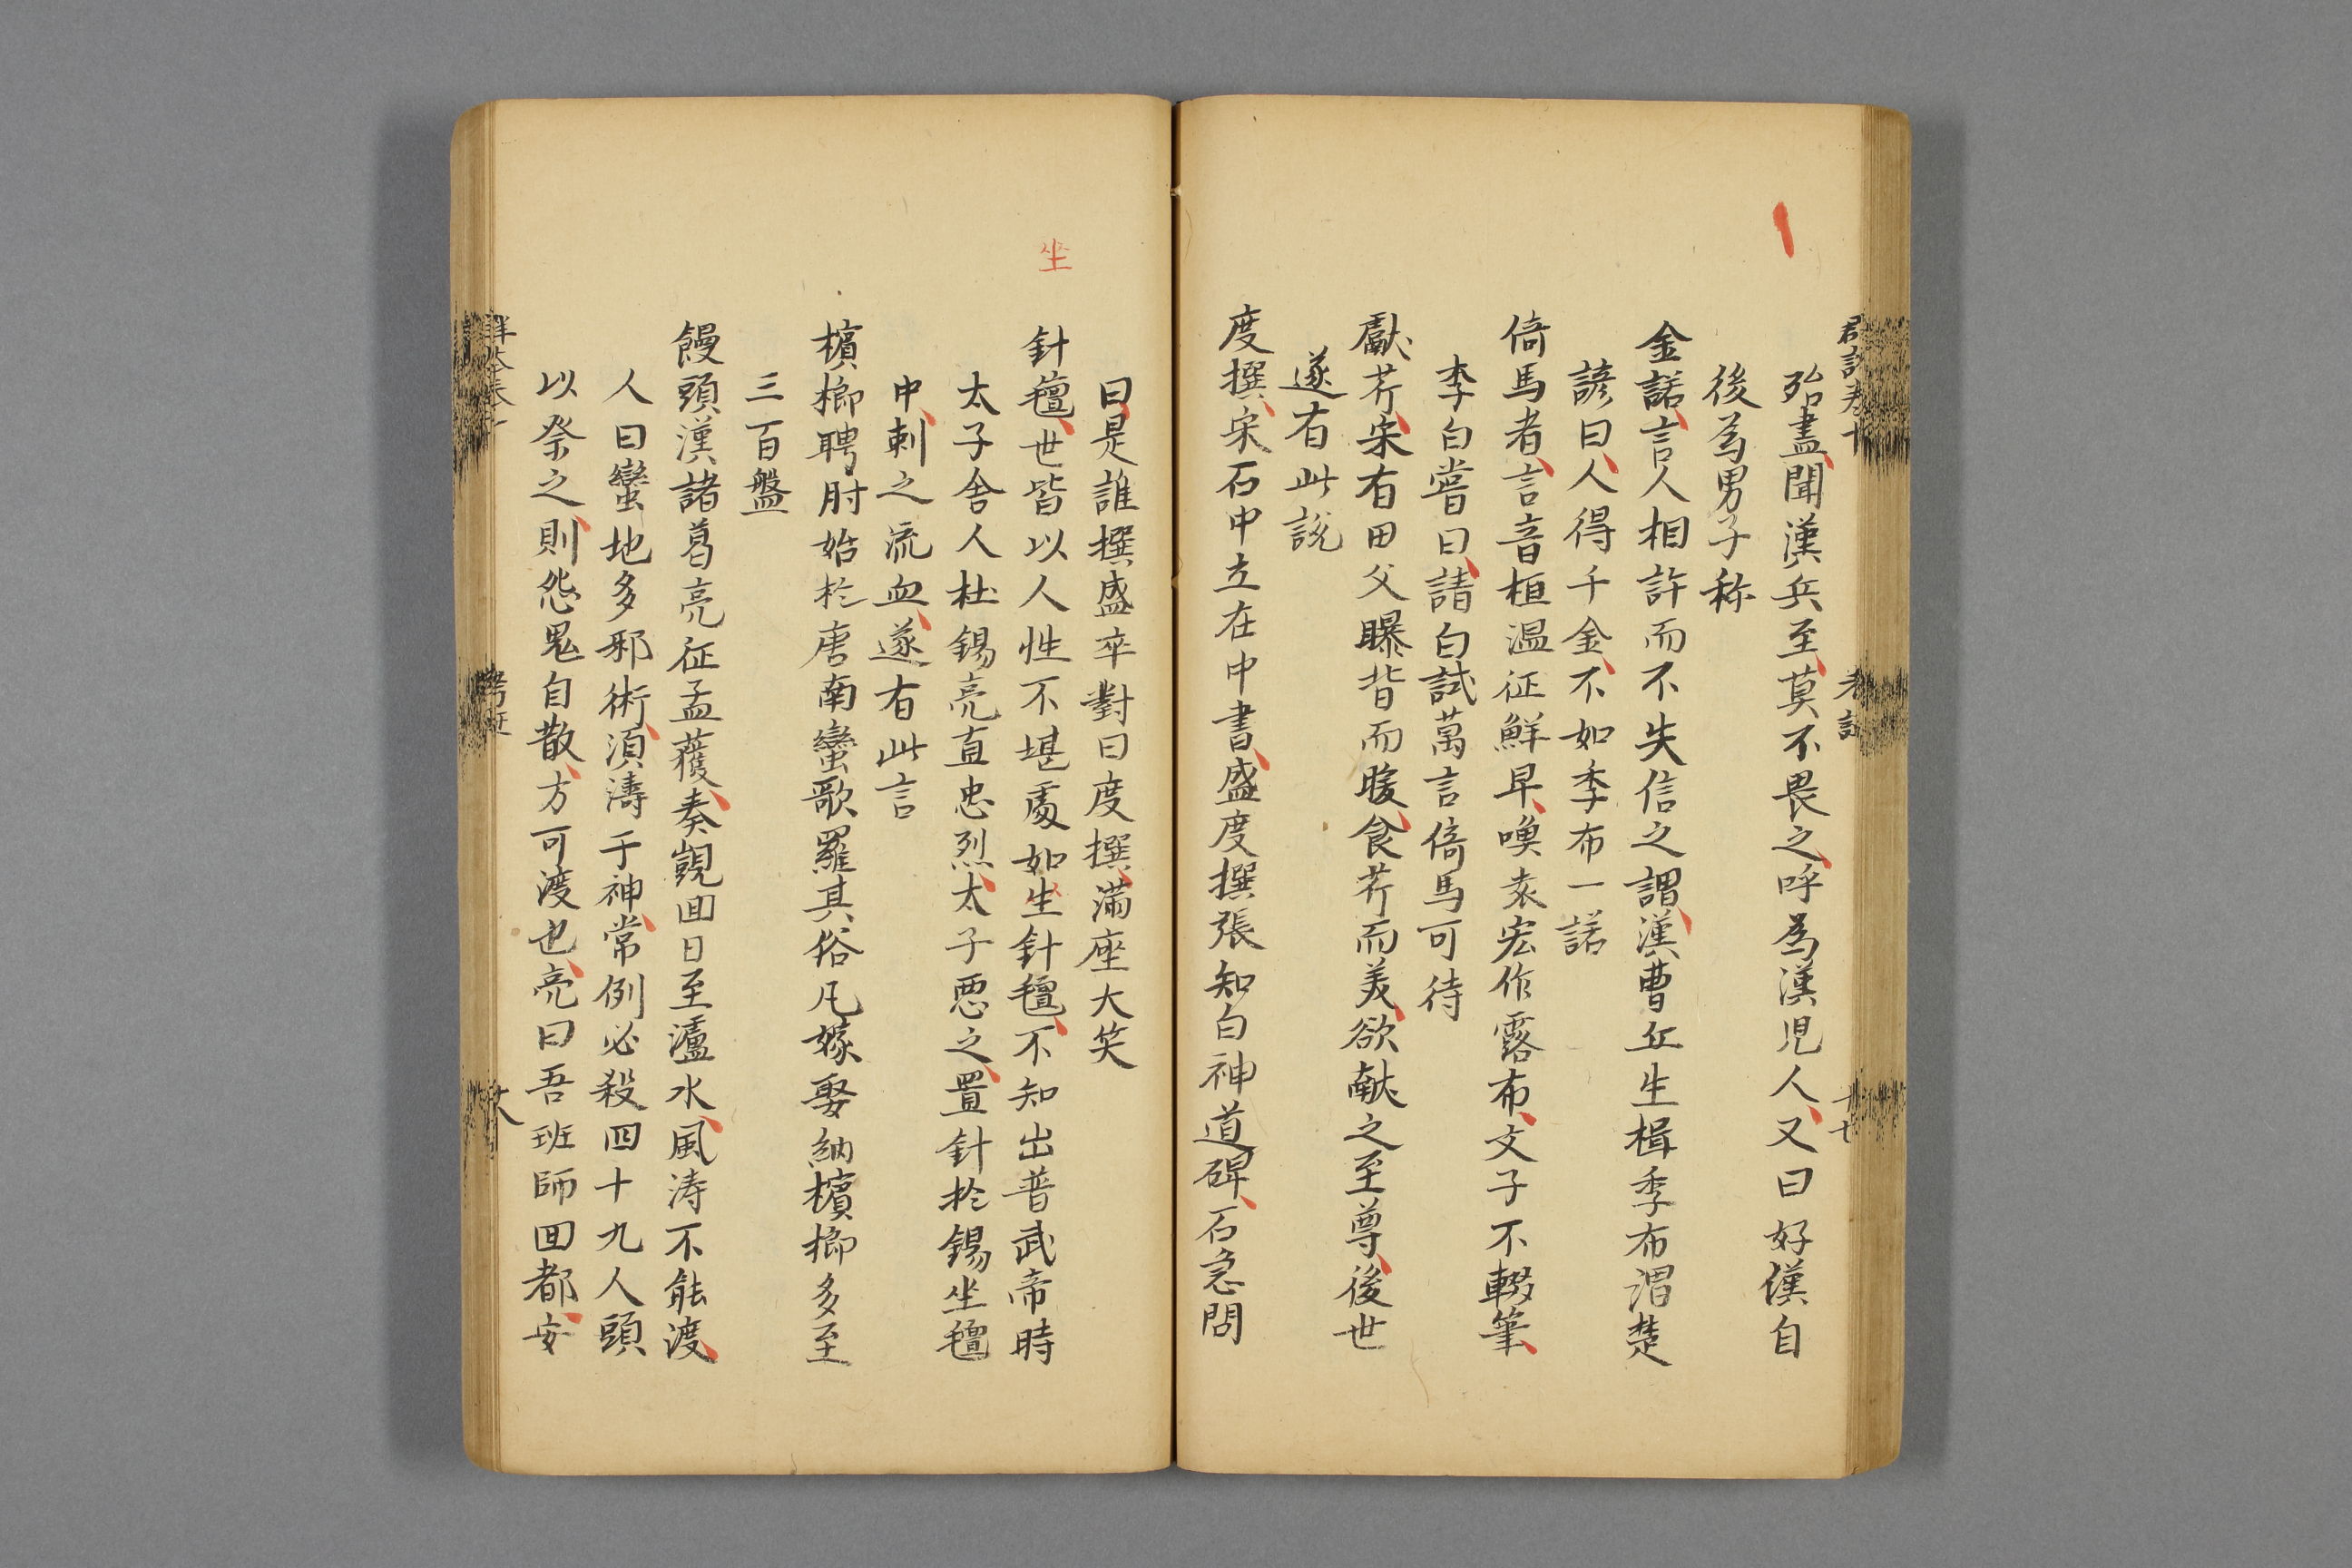 殆盡聞漢兵至莫不畏之呼為漢児人又曰好漢自
後為男子称
金諾言人相許而不失信之謂漢曹丘生楫季布謂楚
諺曰人得千金不如季布一諾
倚馬者言音桓温征鮮早喚袁宏作露布文子不輟筆
李白嘗曰請白試萬言倚馬可待
獻芹宋有田父曝背而暖食芹而美欲献之至尊後世
遂有此説
度撰宋石中立在中書盛度撰張知白神道碑石急問
曰是誰撰盛卒對曰度撰滿座大笑
坐
針氊世皆以人性不堪處如生針氊不知出普武帝時
太子舎人杜錫亮直忠烈太子悪之置針於錫坐氊
中刺之流血遂有此言
檳榔聘肘始於唐南蠻歌羅其俗凡嫁娶納檳榔多至
三百盤
饅頭漢諸葛亮征孟獲奏覬囬日至瀘水風涛不能渡
人曰蠻地多邪術湏濤于神常例必殺四十九人頭
以祭之則怨鬼自散方可渡也亮曰吾班師囬都安